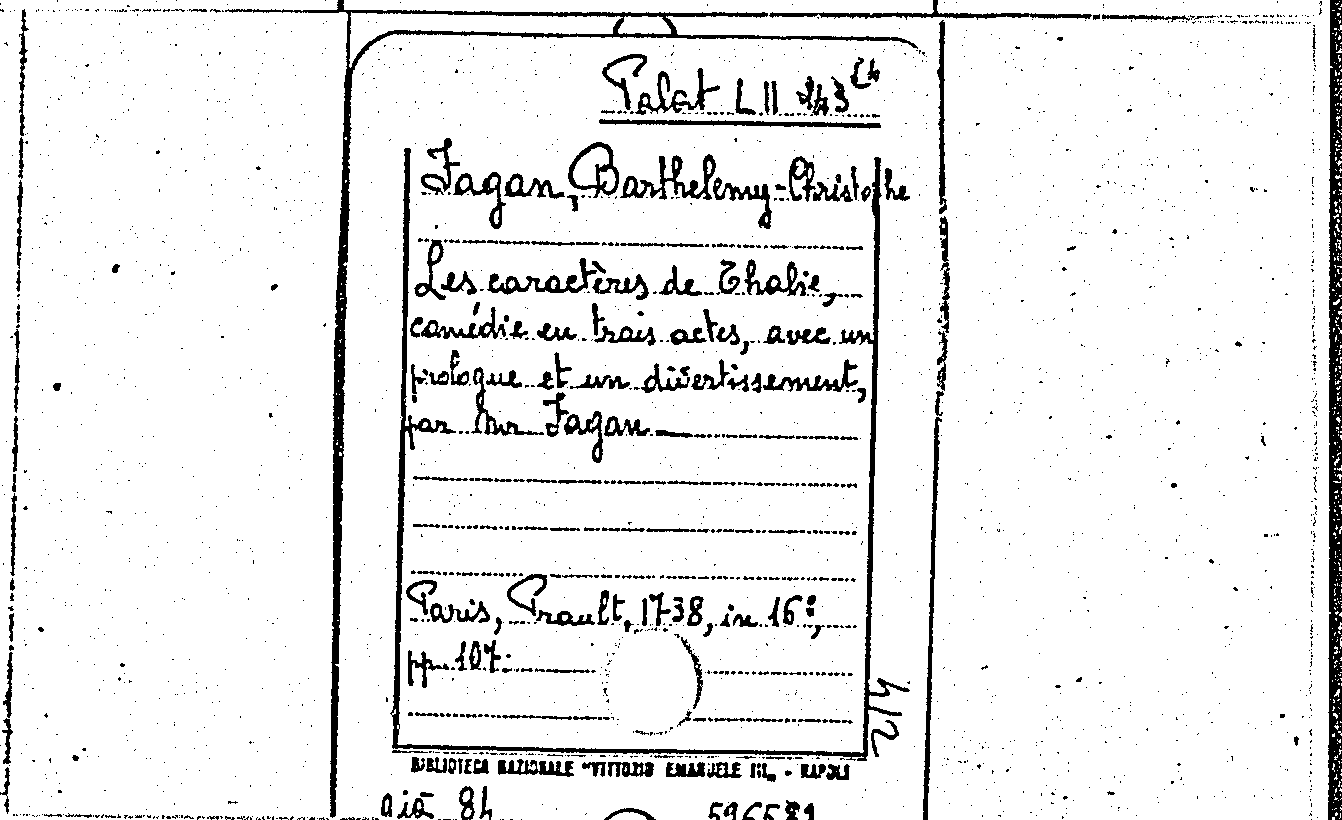 Palat L II 243
Fagan, Barthelemy-Christophe
Les caractères de Thalie,
comédie en trais actes, avec un
prologue et un divertissement,
par Mr Fagan
Paris, Prault, 1738, in 16°,
pp. 107.
2/4
BIBLIOTECA NAZIONALE "VITTORIO EMANUELE III„ - NAPOLI
già 84
596581